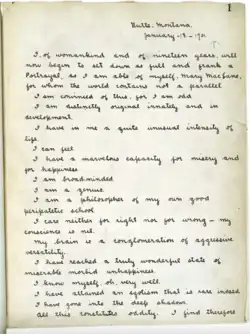 1
Butte, Montana,
January -13 - 1901
I of womankind and of nineteen years, will
now begin to set down as full and frank a
Portrayal, as I am able of myself, Mary MacLane,
for whom the world contains not a parallel.
I am convinced of this, for I am odd.
I am distinctly original innately and in
development.
I have in me a quite unusual intensity of
life.
I can feel.
I have a marvelous capacity for misery and
for happiness.
I am broad-minded.
I am a genius.
I am a philosopher of my own good
peripatetic school.
I care neither for right nor for wrong - my
conscience is nil.
My brain is a conglomeration of aggressive
versatility.
I have reached a truly wonderful state of
miserable morbid unhappiness.
I know myself, oh, very well.
I have attained an egotism that is rare indeed.
I have gone into the deep shadows.
All this constitutes oddity. I find therefore